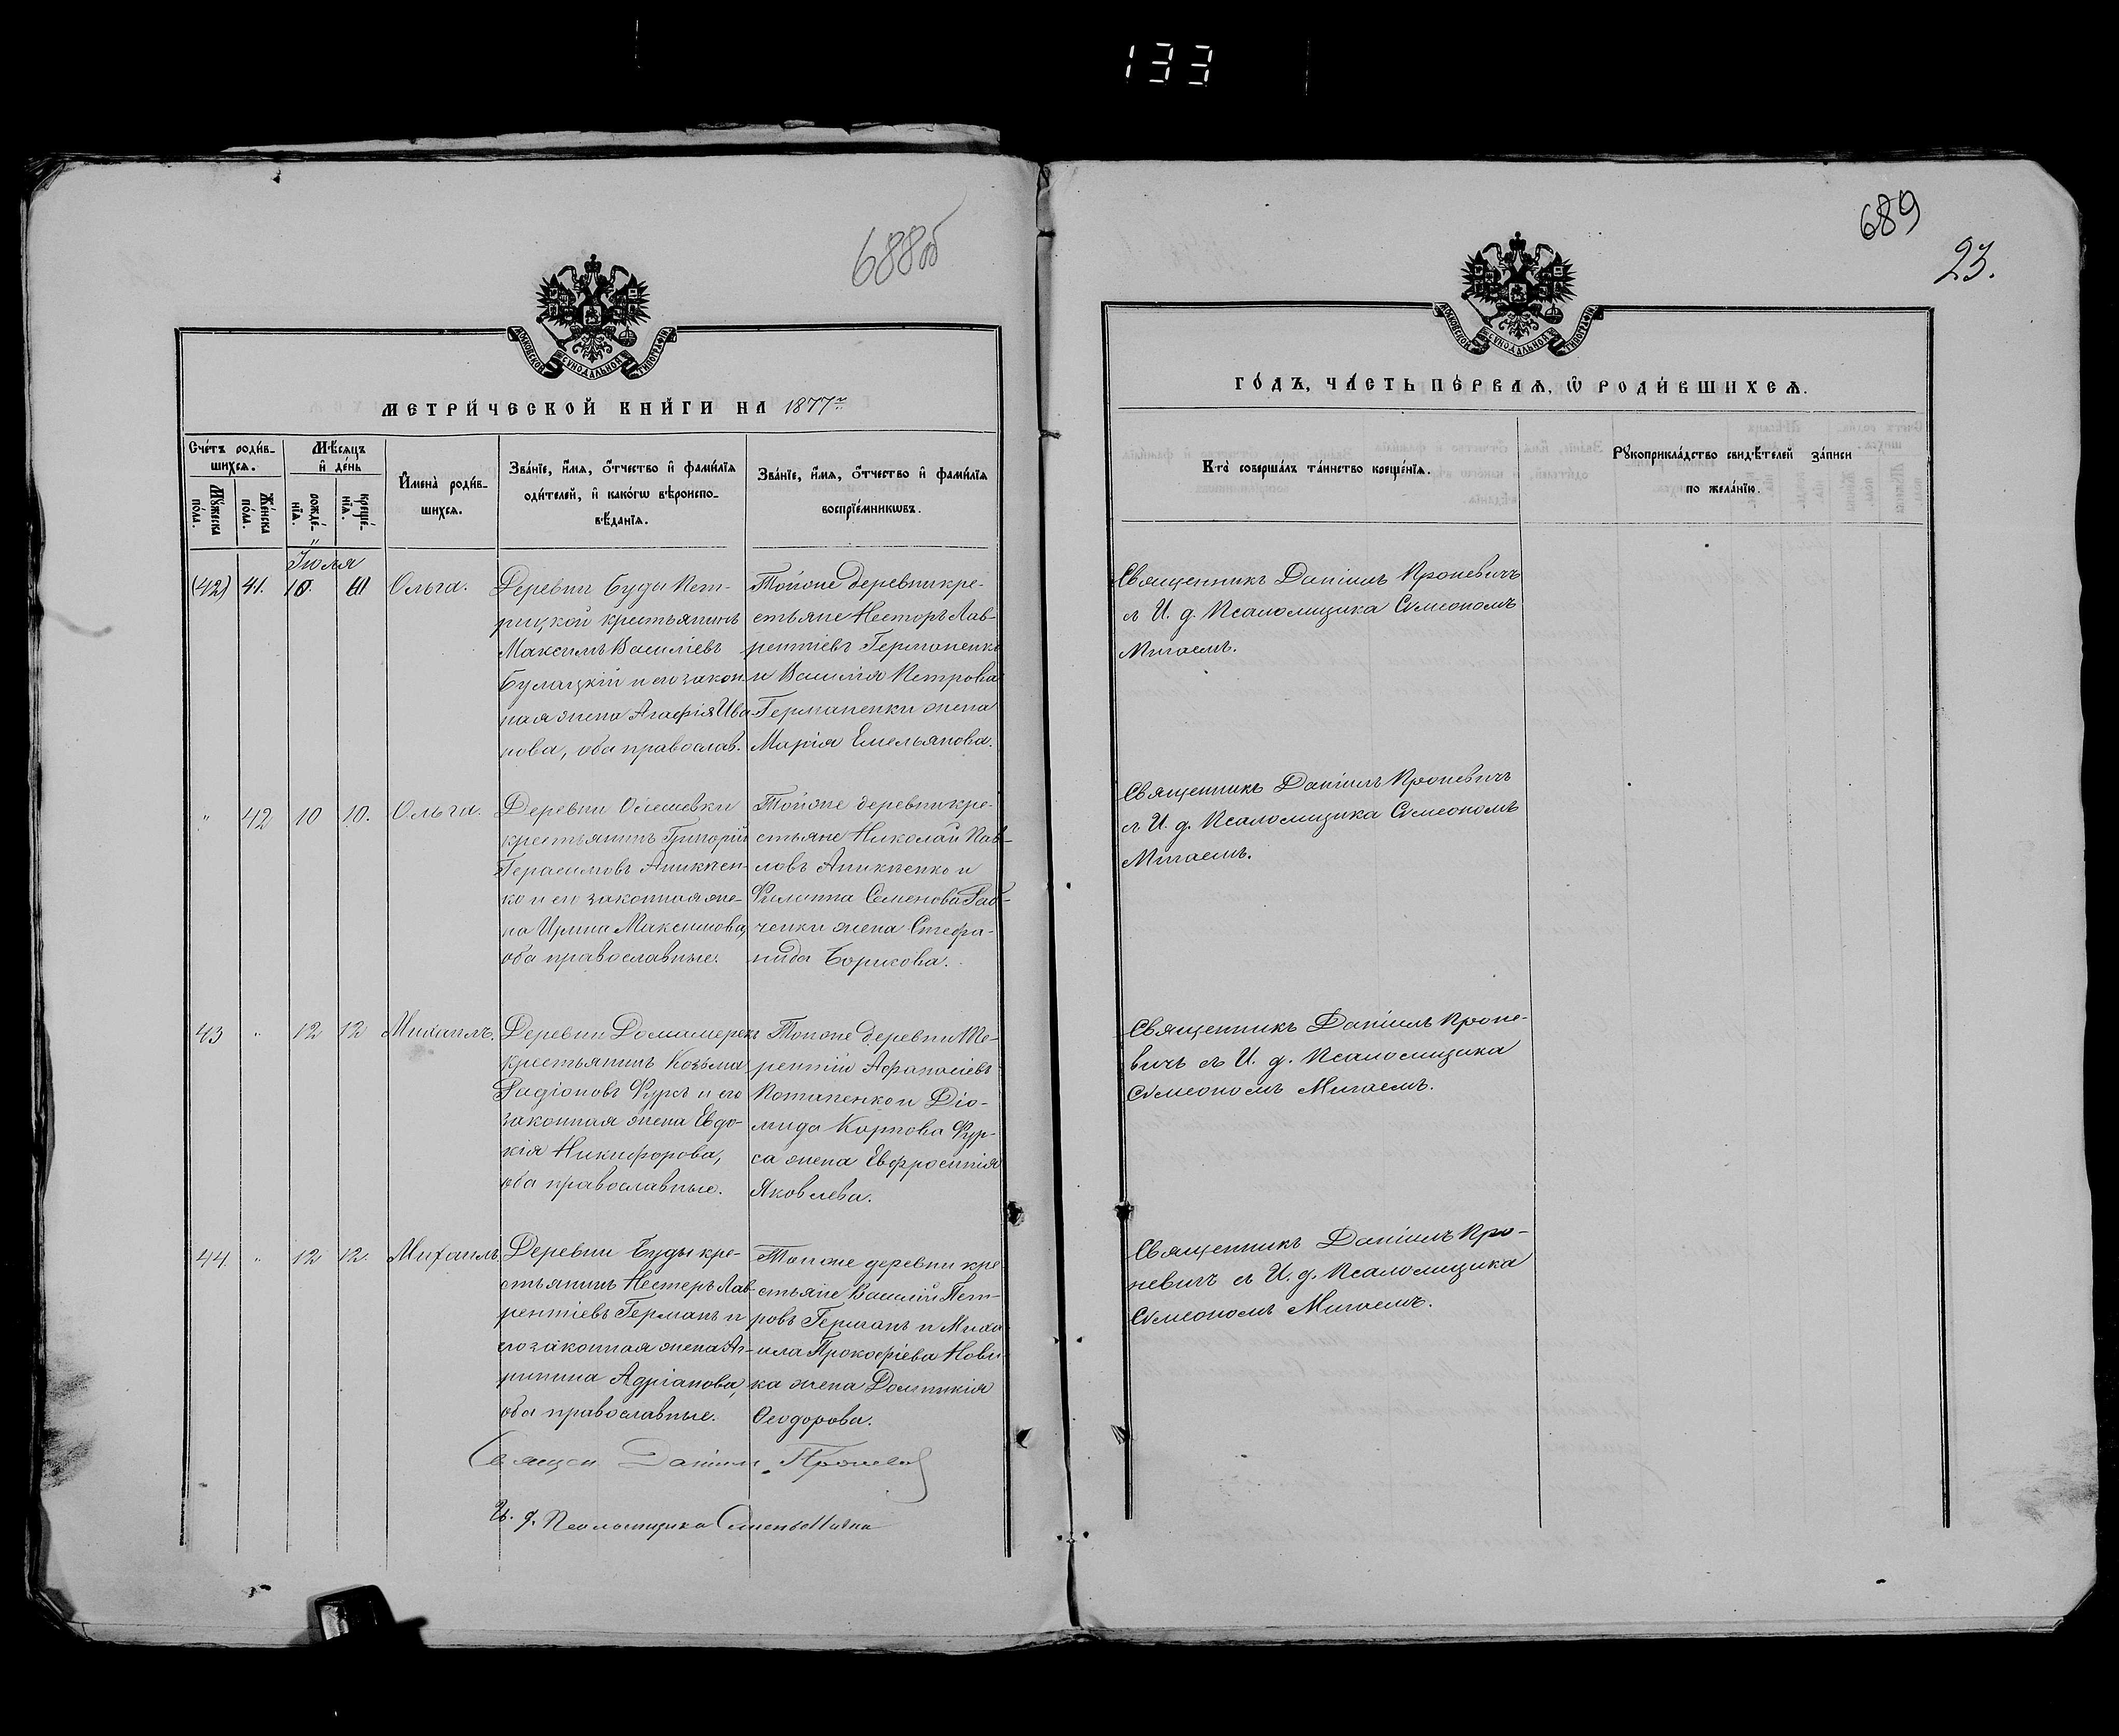 133
688об
689
23.
МОСКОВСКОЙ СѴНОДАЛЬНОЙ ТИПОГРАФІИ
МЕТРИ́ЧЕСКОЙ КНИ́ГИ НА 1877 г.
Сче́тъ роди́в-
шихсѧ.
Мꙋ́жеска
по́ла.
Же́нска
по́ла.
М҄ѣсѧцъ
и҆ де́нь
рожде́-
нїѧ.
креще́-
нїѧ.
И҆мена̀ роди́в-
шихсѧ.
Зва́нїе, и҆́мѧ, ѻ҆́тчество и҆ фами́лїѧ
роди́телей, и҆ како́гѡ вѣроиспо-
вѣ́данїѧ.
Зва́нїе, и҆́мѧ, ѻ҆́тчество и҆ фами́лїѧ
воспрїе́мникѡвъ.
Іюля
(42) 41. 10. 11 Ольга.
Деревни Буды Пет-
рицкой крестьянинъ
Максимъ Василіевъ
Булацкій и его закон-
ная жена Агафія Ива-
нова, оба православ.
Тойоже деревни кре-
стьяне Несторъ Лав-
рентіевъ Германенко
и Василія Петрова
Германенки жена
Марія Емельянова.
" 42 10 10. Ольга.
Деревни
крестьянинъ Григорій
Герасимовъ Аникѣен-
ко и его законная же-
на Ирина Максимова,
оба православные.
Тойоже деревни кре-
стьяне Николай Пав-
ловъ Аникѣенко и
Филиппа Семенова Раб-
ченки жена Стефа-
нида Борисова.
43 " 12 12 Михаилъ.
Деревни
крестьянинъ Козьма
Радіоновъ Фурсъ и его
законная жена Евдо-
кія Никифорова,
оба православные.
Тоиоже деревни Те-
рентій Афанасіевъ
Потапенко и Діо-
мида Карпова Фур-
са жена Евфросинія
Яковлева.
44. " 12 12. Михаилъ
Деревни Буды кре-
стьянинъ Нестеръ Лав-
рентіевъ Германъ и
его законная жена Аг-
рипина Адріанова,
оба православные.
Тоиоже деревни кре-
стьяне Василій Пет-
ровъ Германъ и Миха-
ила Прокофіева Нови-
ка жена Домникія
Ѳеодорова.
Священ Даніилъ
И. д. Псаломщика
ГО́ДЪ, ЧА́СТЬ ПЕ́РВАѦ, Ѡ҆ РОДИ́ВШИХСѦ.
МОСКОВСКОЙ СѴНОДАЛЬНОЙ ТИПОГРАФІИ
Кто̀ соверша́лъ та́инство креще́нїѧ.
Рꙋкоприкла́дство свидѣ́телей за́писи
по жела́нїю.
Священникъ Даніилъ Проневичъ
съ И. д. Псаломщика Сѵмеономъ
Мигаемъ.
Священникъ Даніилъ Проневичъ
съ И. д. Псаломщика Сѵмеономъ
Мигаемъ.
Священникъ Даніилъ Проне-
вичъ съ И. д. Псаломщика
Сѵмеономъ Мигаемъ.
Священникъ Даніилъ Про-
невичъ съ И. д. Псаломщика
Сѵмеономъ Мигаемъ.